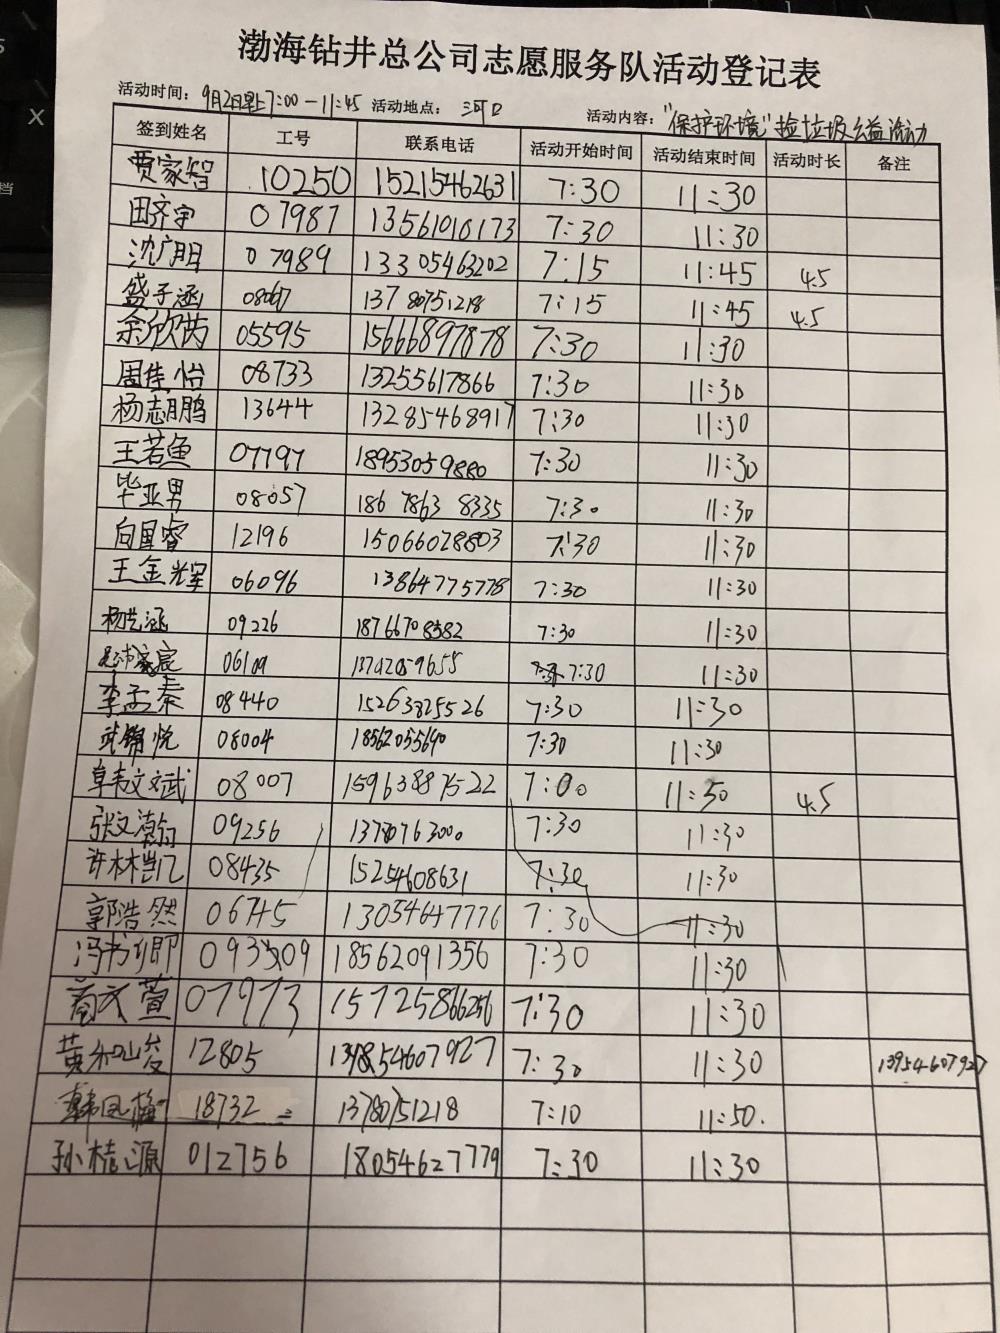 渤海钻井总公司志愿服务队活动登记表
活动时间：9月2日早上7:00-11:45 活动地点：河口 活动内容："保护环境"捡垃圾公益活动
签到姓名 工号 联系电话 活动开始时间 活动结束时间 活动时长 备注
贾家智 10250 15215462631 7:30 11:30
田齐宇 07987 13561016173 7:30 11:30
沈广明 07989 13305463202 7:15 11:45 4.5
盛子涵 08067 13780751218 7:15 11:45 4.5
余欣芮 05595 15666897878 7:30 11:30
周佳怡 08733 13255617866 7:30 11:30
杨志鹏 13644 13285468917 7:30 11:30
王若鱼 07797 18953059880 7:30 11:30
毕亚男 08057 186 7863 8335 7:30 11:30
向国睿 12196 15066028803 7:30 11:30
王金辉 06096 13864775778 7:30 11:30
杨艺涵 09226 18766708582 7:30 11:30
06109 13742059655 7:30 11:30
李孟秦 08440 15263825526 7:30 11:30
武锦悦 08004 18562055640 7:30 11:30
韦文斌 08007 15963887522 7:00 11:30 4.5
张文瀚 09256 13780763000 7:30 11:30
许林凯 08435 15254608631 7:30 11:30
郭浩然 06745 13054647776 7:30 11:30
冯书卿 093509 18562091356 7:30 11:30
萱 07973 15725866256 7:30 11:30
黄和俊 12805 13954607927 7:30 11:30 13954607927
韩凤梅 18732 13780751218 7:10 11:50.
孙桂源 012756 18054627779 7:30 11:30